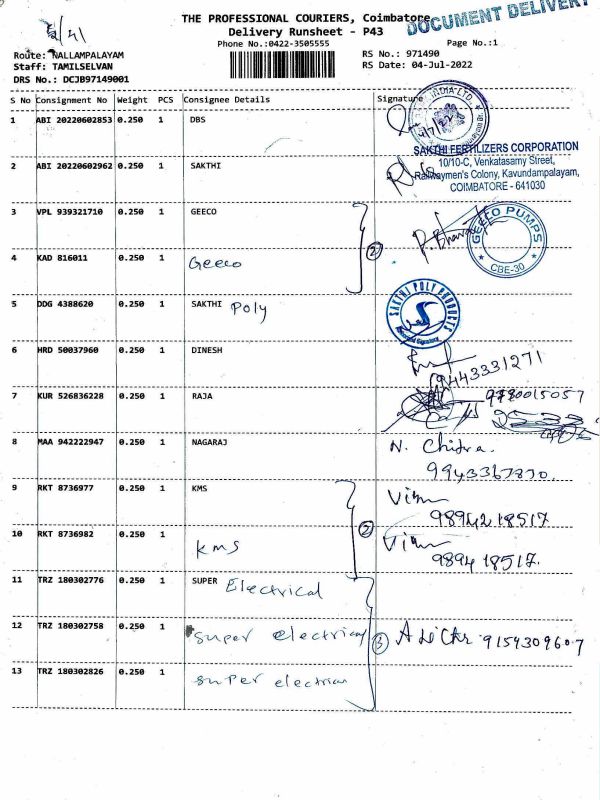 THE PROFESSIONAL COURIERS, Coimbatore
DOCUMENT DELIVERY
Delivery Runsheet - P43
Phone No.:0422-3505555
Page No.:1
Route: NALLAMPALAYAM
RS No.: 971490
Staff: TAMILSELVAN
RS Date: 04-Jul-2022
DRS No.: DCJB97149001
S No Consignment No Weight PCS Consignee Details Signature
1 ABI 20220602853 0.250 1 DBS
INDIA LTD.
4/7/22
2 ABI 20220602962 0.250 1 SAKTHI
SAKTHI FERTILIZERS CORPORATION
10/10-C, Venkatasamy Street,
Railwaymen's Colony, Kavundampalayam,
COIMBATORE - 641030
3 VPL 939321710 0.250 1 GEECO
GEECO PUMPS
CBE-30
4 KAD 816011 0.250 1 Geeco
2
5 DDG 4388620 0.250 1 SAKTHI Poly
SAKTHI POLY PRODUCTS
6 HRD 50037960 0.250 1 DINESH
9443331271
7 KUR 526836228 0.250 1 RAJA
8 MAA 942222947 0.250 1 NAGARAJ N. Chitra.
9 RKT 8736977 0.250 1 KMS
9894218517
10 RKT 8736982 0.250 1 KMS
2
9894 18517.
11 TRZ 180302776 0.250 1 SUPER Electrical
12 TRZ 180302758 0.250 1 super electrical
3
9154309607
13 TRZ 180302826 0.250 1 super electrical